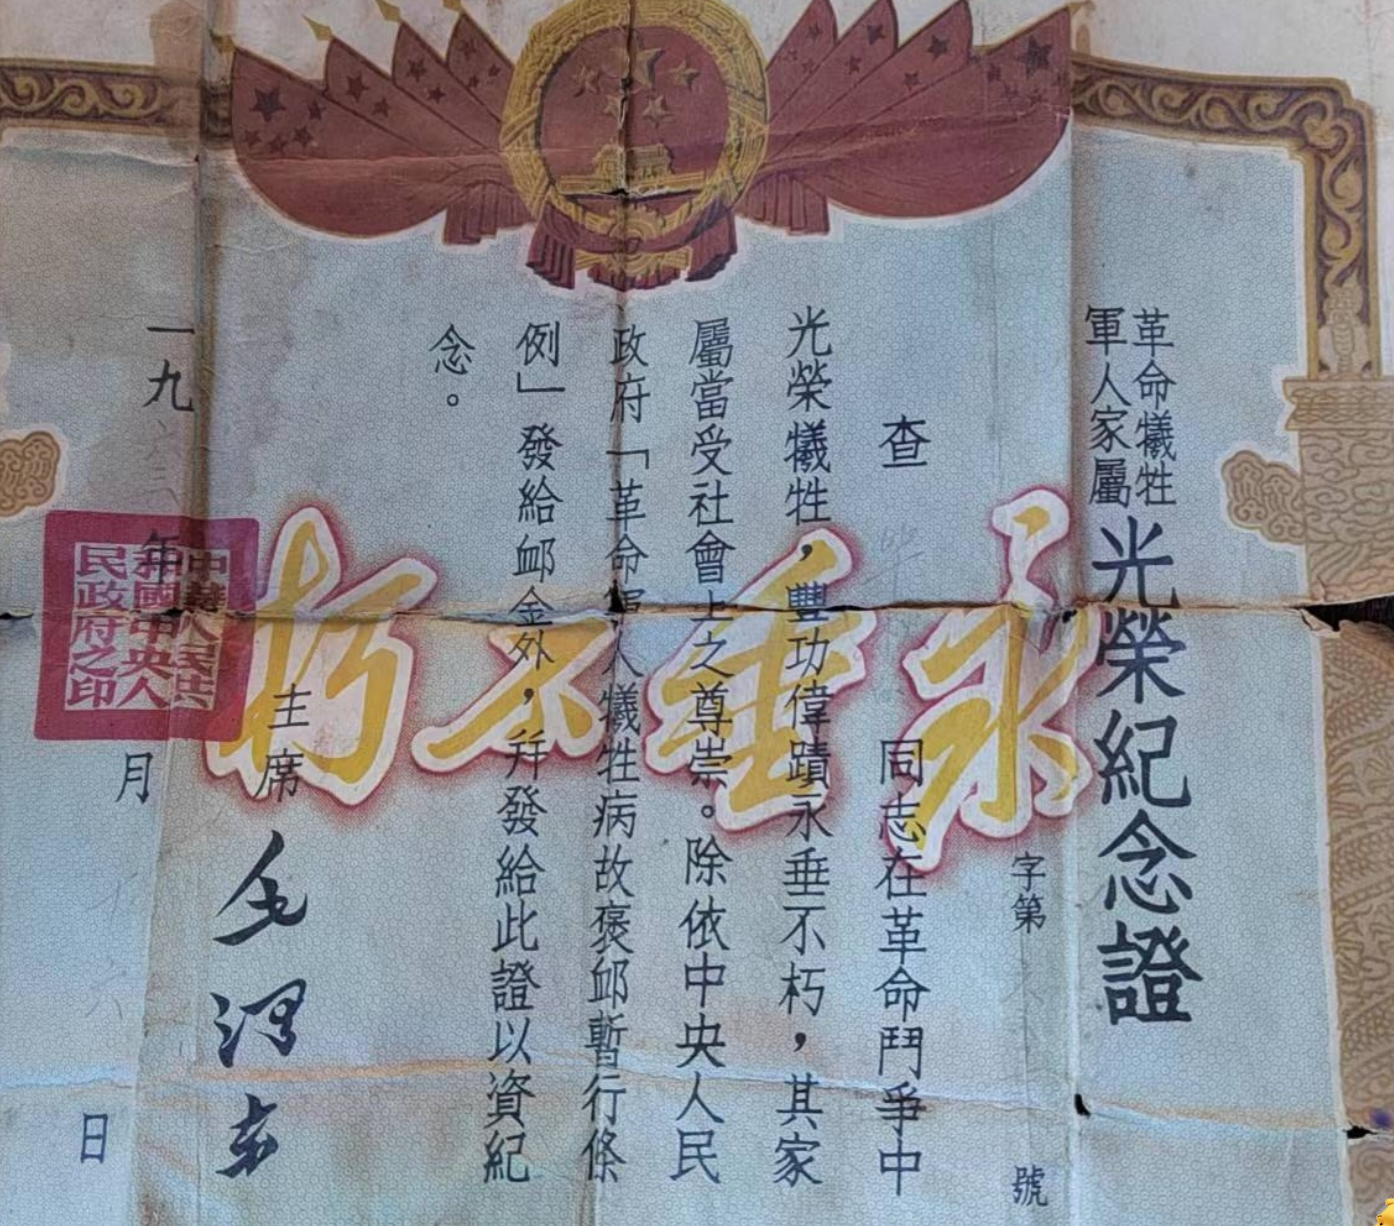 革命犧牲
軍人家屬
光榮紀念證
字第 號
查 同志在革命鬥爭中
光榮犧牲，豐功偉蹟永垂不朽，其家
屬當受社會上之尊崇。除依中央人民
政府「革命軍人犧牲病故褒卹暫行條
例」發給卹金外，幷發給此證以資紀
念。
永垂不朽
主席 毛澤东
一九 年 月 日
中華人民共
和國中央人
民政府之印